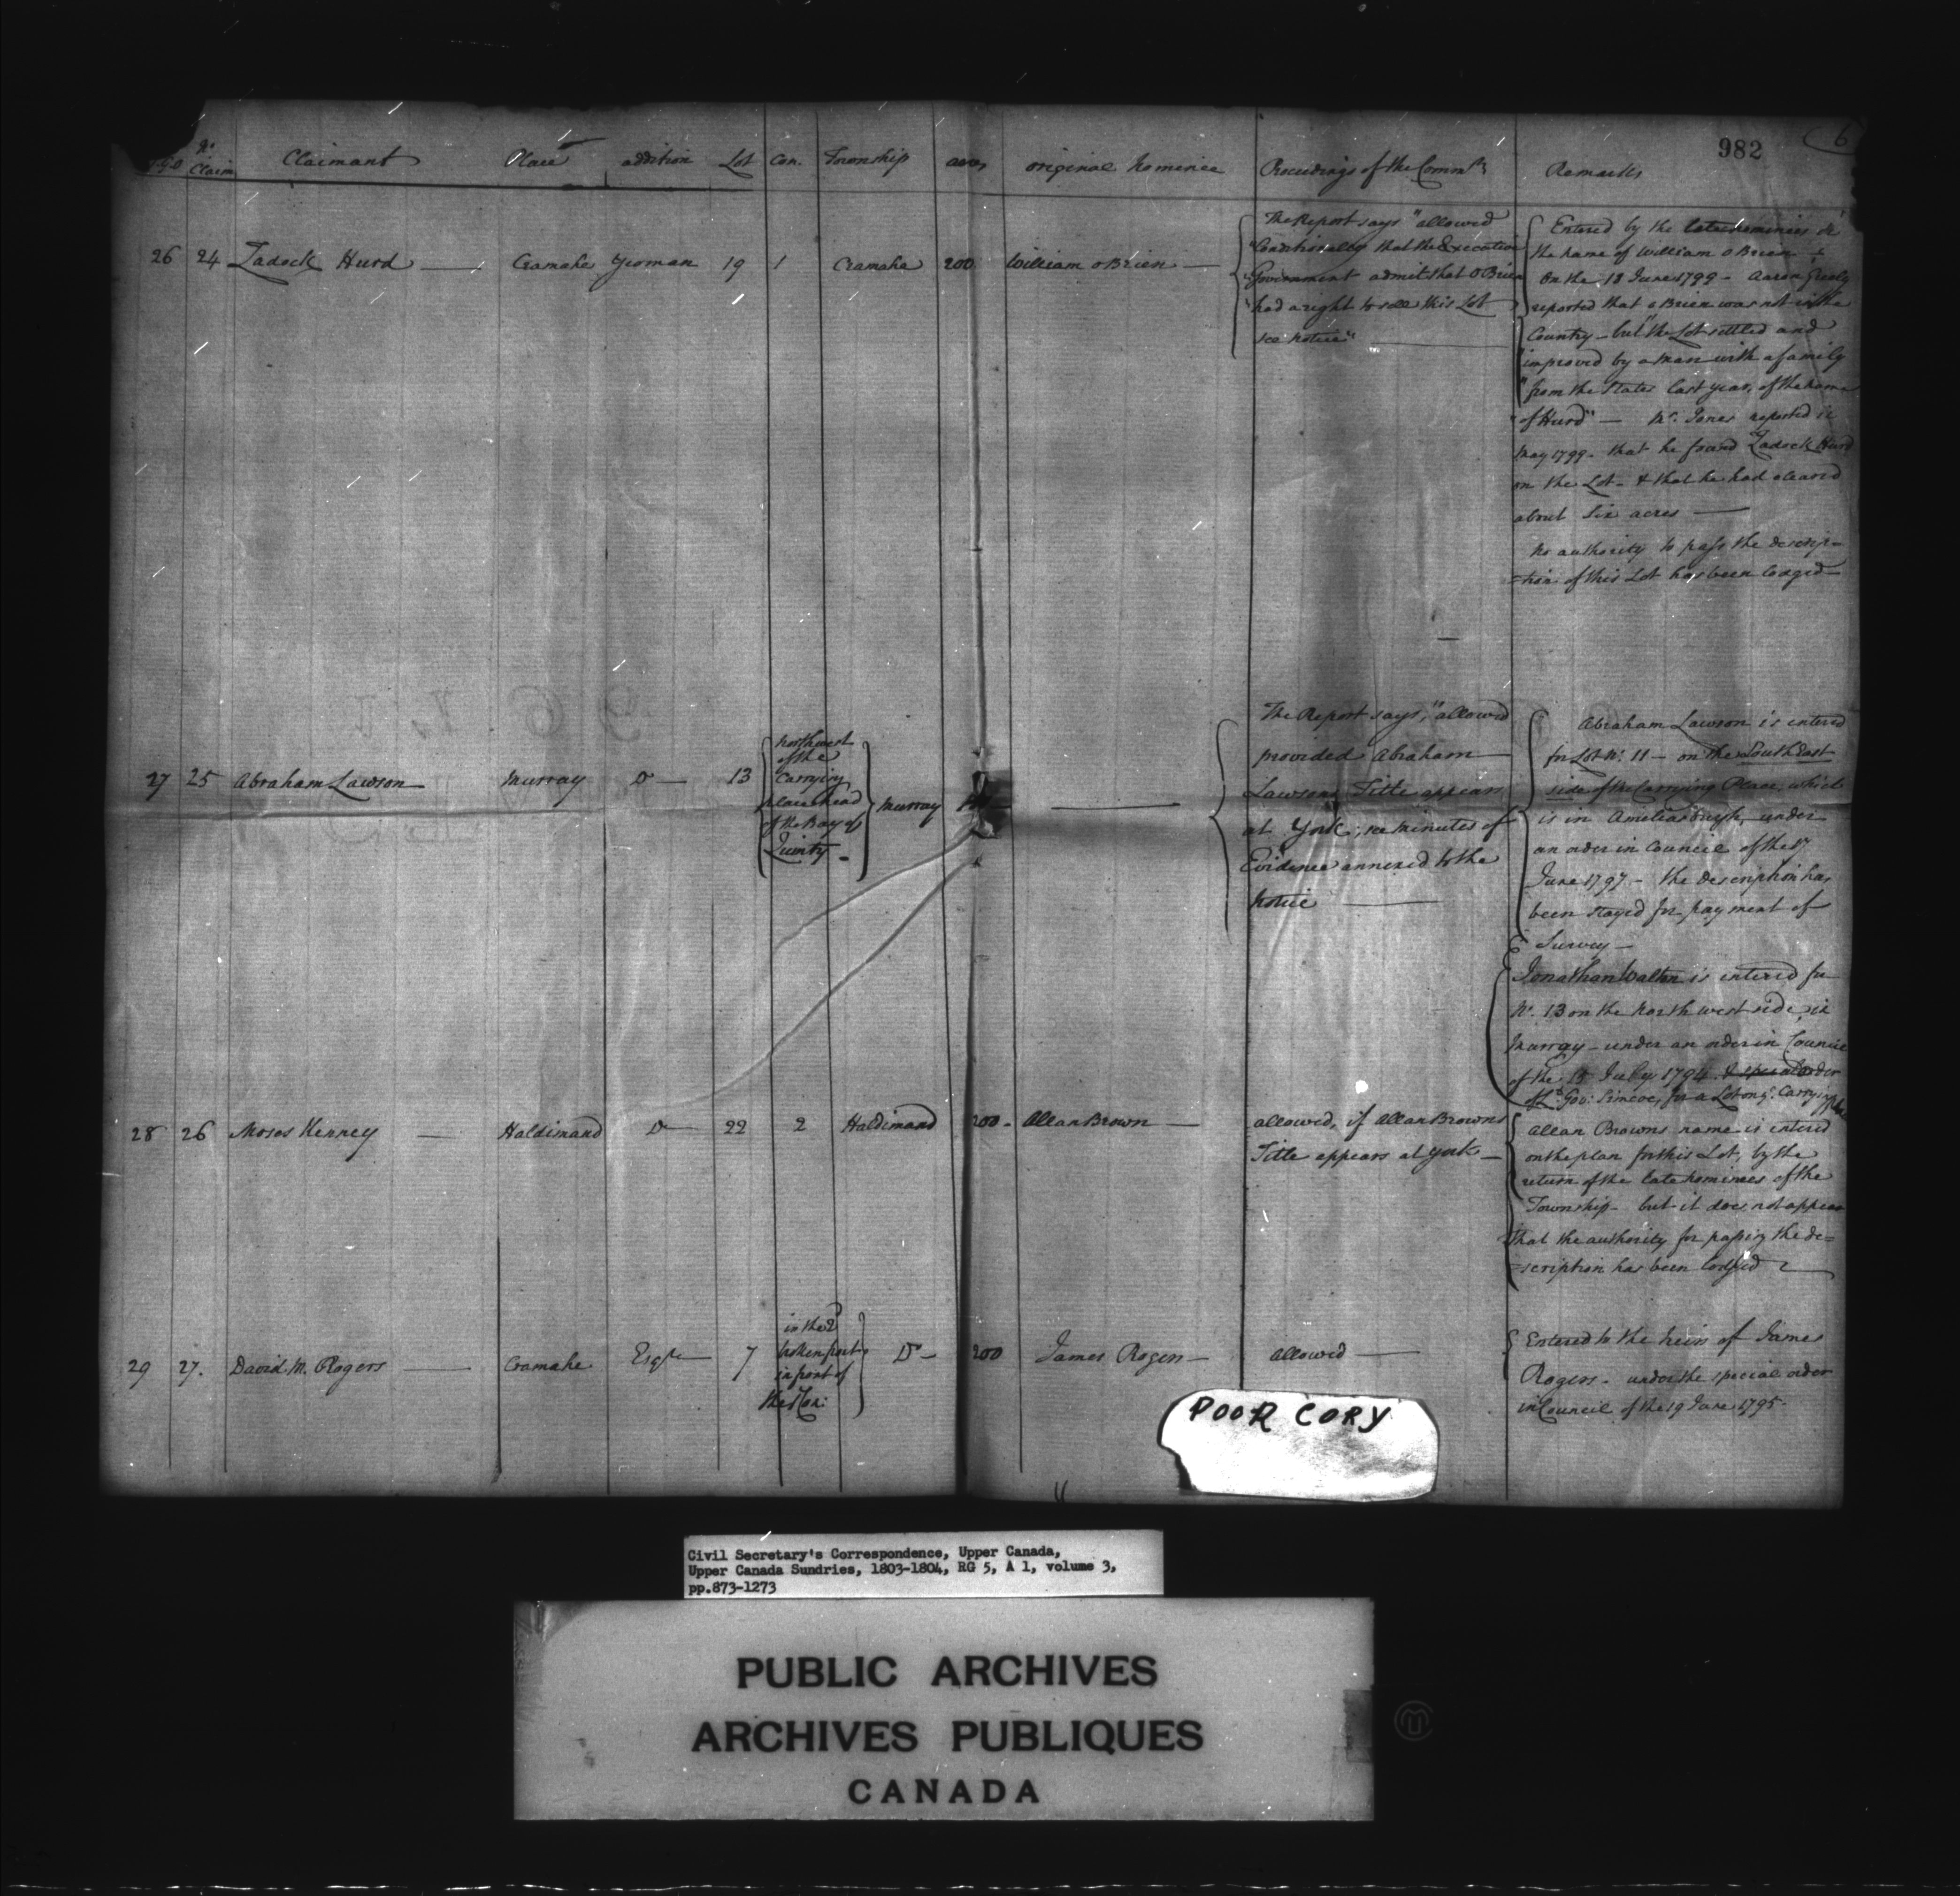 982
6
No. Claim
Claimant
Place
addition
Lot
Con.
Township
acres
original Nominee
Proceedings of the Commrs
Remarks
26
24
Zadock Hurd
Cramahe
yeoman
19
1
Cramahe
200
William oBrien
The Report says "allowed
"Conditionally that the Executive
"Government admit that OBrien
"had a right to sell this Lot
see notice"
Entered by the late nominees in
the name of William oBrien
On the 18 June 1799 - Aaron Greely
reported that oBrien was not in the
Country - but "the Lot settled and
"improved by a man with a family
"from the States last year, of the name
"of Hurd" - Mr. Jones reported in
May 1799 - that he found Zadock Hurd
on the Lot - & that he had cleared
about Six acres
No authority to pass the descrip-
-tion of this Lot has been lodged
27
25
Abraham Lawson
Murray
Do
13
North west
of the
Carrying
place head
of the Bay of
Quinty -
Murray
The Report says, "allowed
provided Abraham
Lawsons Title appears
at York; see minutes of
Evidence annexed to the
Notice
Abraham Lawson is entered
for Lot No. 11 - on the South East
side of the Carrying Place, which
is in Ameliasburgh, under
an order in Council of the
June 1797 - the description has
been stayed for payment of
Survey -
Jonathan Walton is entered for
No. 13 on the North west side, in
Murray - under an order in Council
of the July 1794 & special order
of Lt. Gov: Simcoe, for a Lot on ye. Carrying place
28
26
Moses Kenney
Haldimand
Do
22
2
Haldimand
200
Allan Brown
allowed, if Allan Browns
Title appears at York
Allan Browns name is entered
on the plan for this Lot, by the
return of the late Nominees of the
Township - but it does not appear
that the authority for passing the de=
=scription has been lodged
29
27.
David M. Rogers
Cramahe
Esqre
7
in the 2d
broken front
in front of
the 1 Con:
Do
200
James Rogers
allowed
Entered to the heirs of James
Rogers - under the special order
in Council of the 19 June 1795
POOR COPY
Civil Secretary's Correspondence, Upper Canada,
Upper Canada Sundries, 1803-1804, RG 5, A 1, volume 3,
pp.873-1273
PUBLIC ARCHIVES
ARCHIVES PUBLIQUES
CANADA